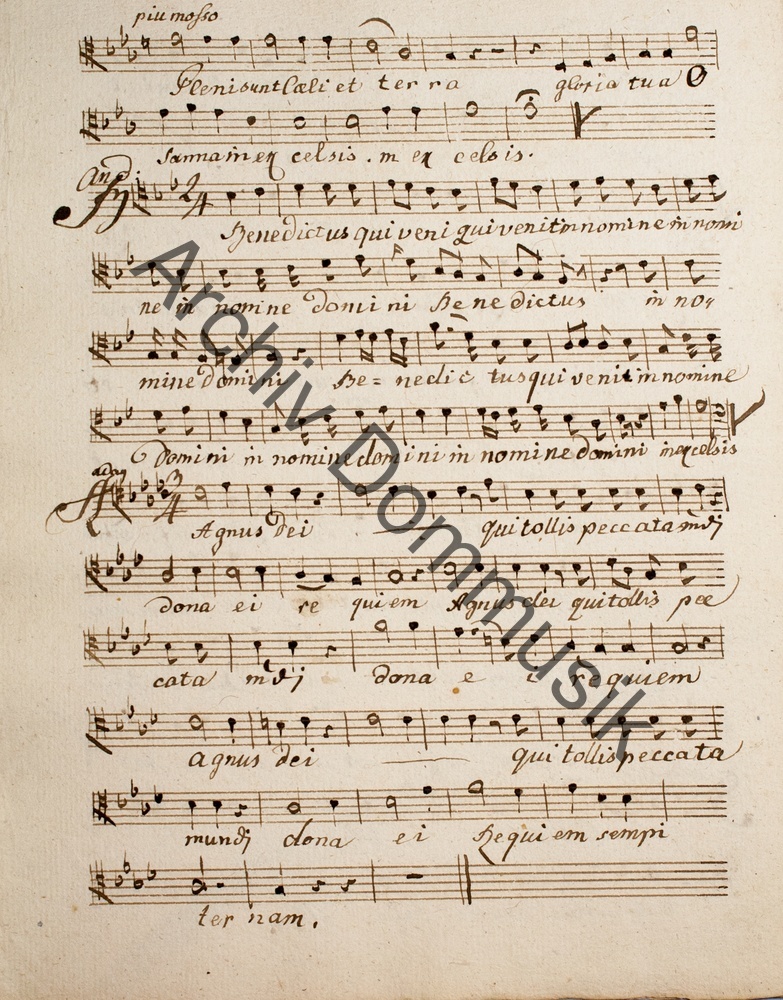 piu mosso
Pleni sunt Cæli et ter ra gloria tua O
sanna in ex celsis. in ex celsis.
And.
2/4
Benedictus qui veni qui venit in nomine in nomi
ne in nomine domini Be ne dictus in no
mine domini Be = nedic tus qui venit in nomine
Domini in nomine domini in nomine domini in excelsis
adag
3/4
Agnus Dei qui tollis peccata
dona ei re qui em Agnus dei qui tollis pec
cata dona e i requiem
agnus dei qui tollis peccata
mundi dona ei Requi em sempi
ter nam.
Archiv Dommusik